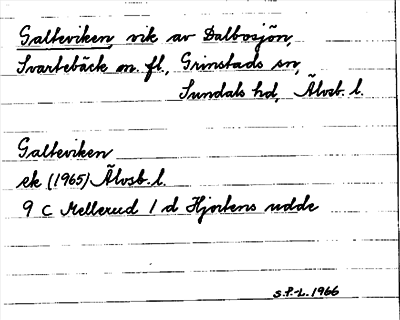 Galteviken vik av Dalbosjön,
Svartebäck m. fl., Grinstads sn,
Sundals hd, Älvsb. l.
Galteviken
ek (1965) Älvsb. l.
9 C Mellerud 1 d Hjortens udde
S.P.-L. 1966